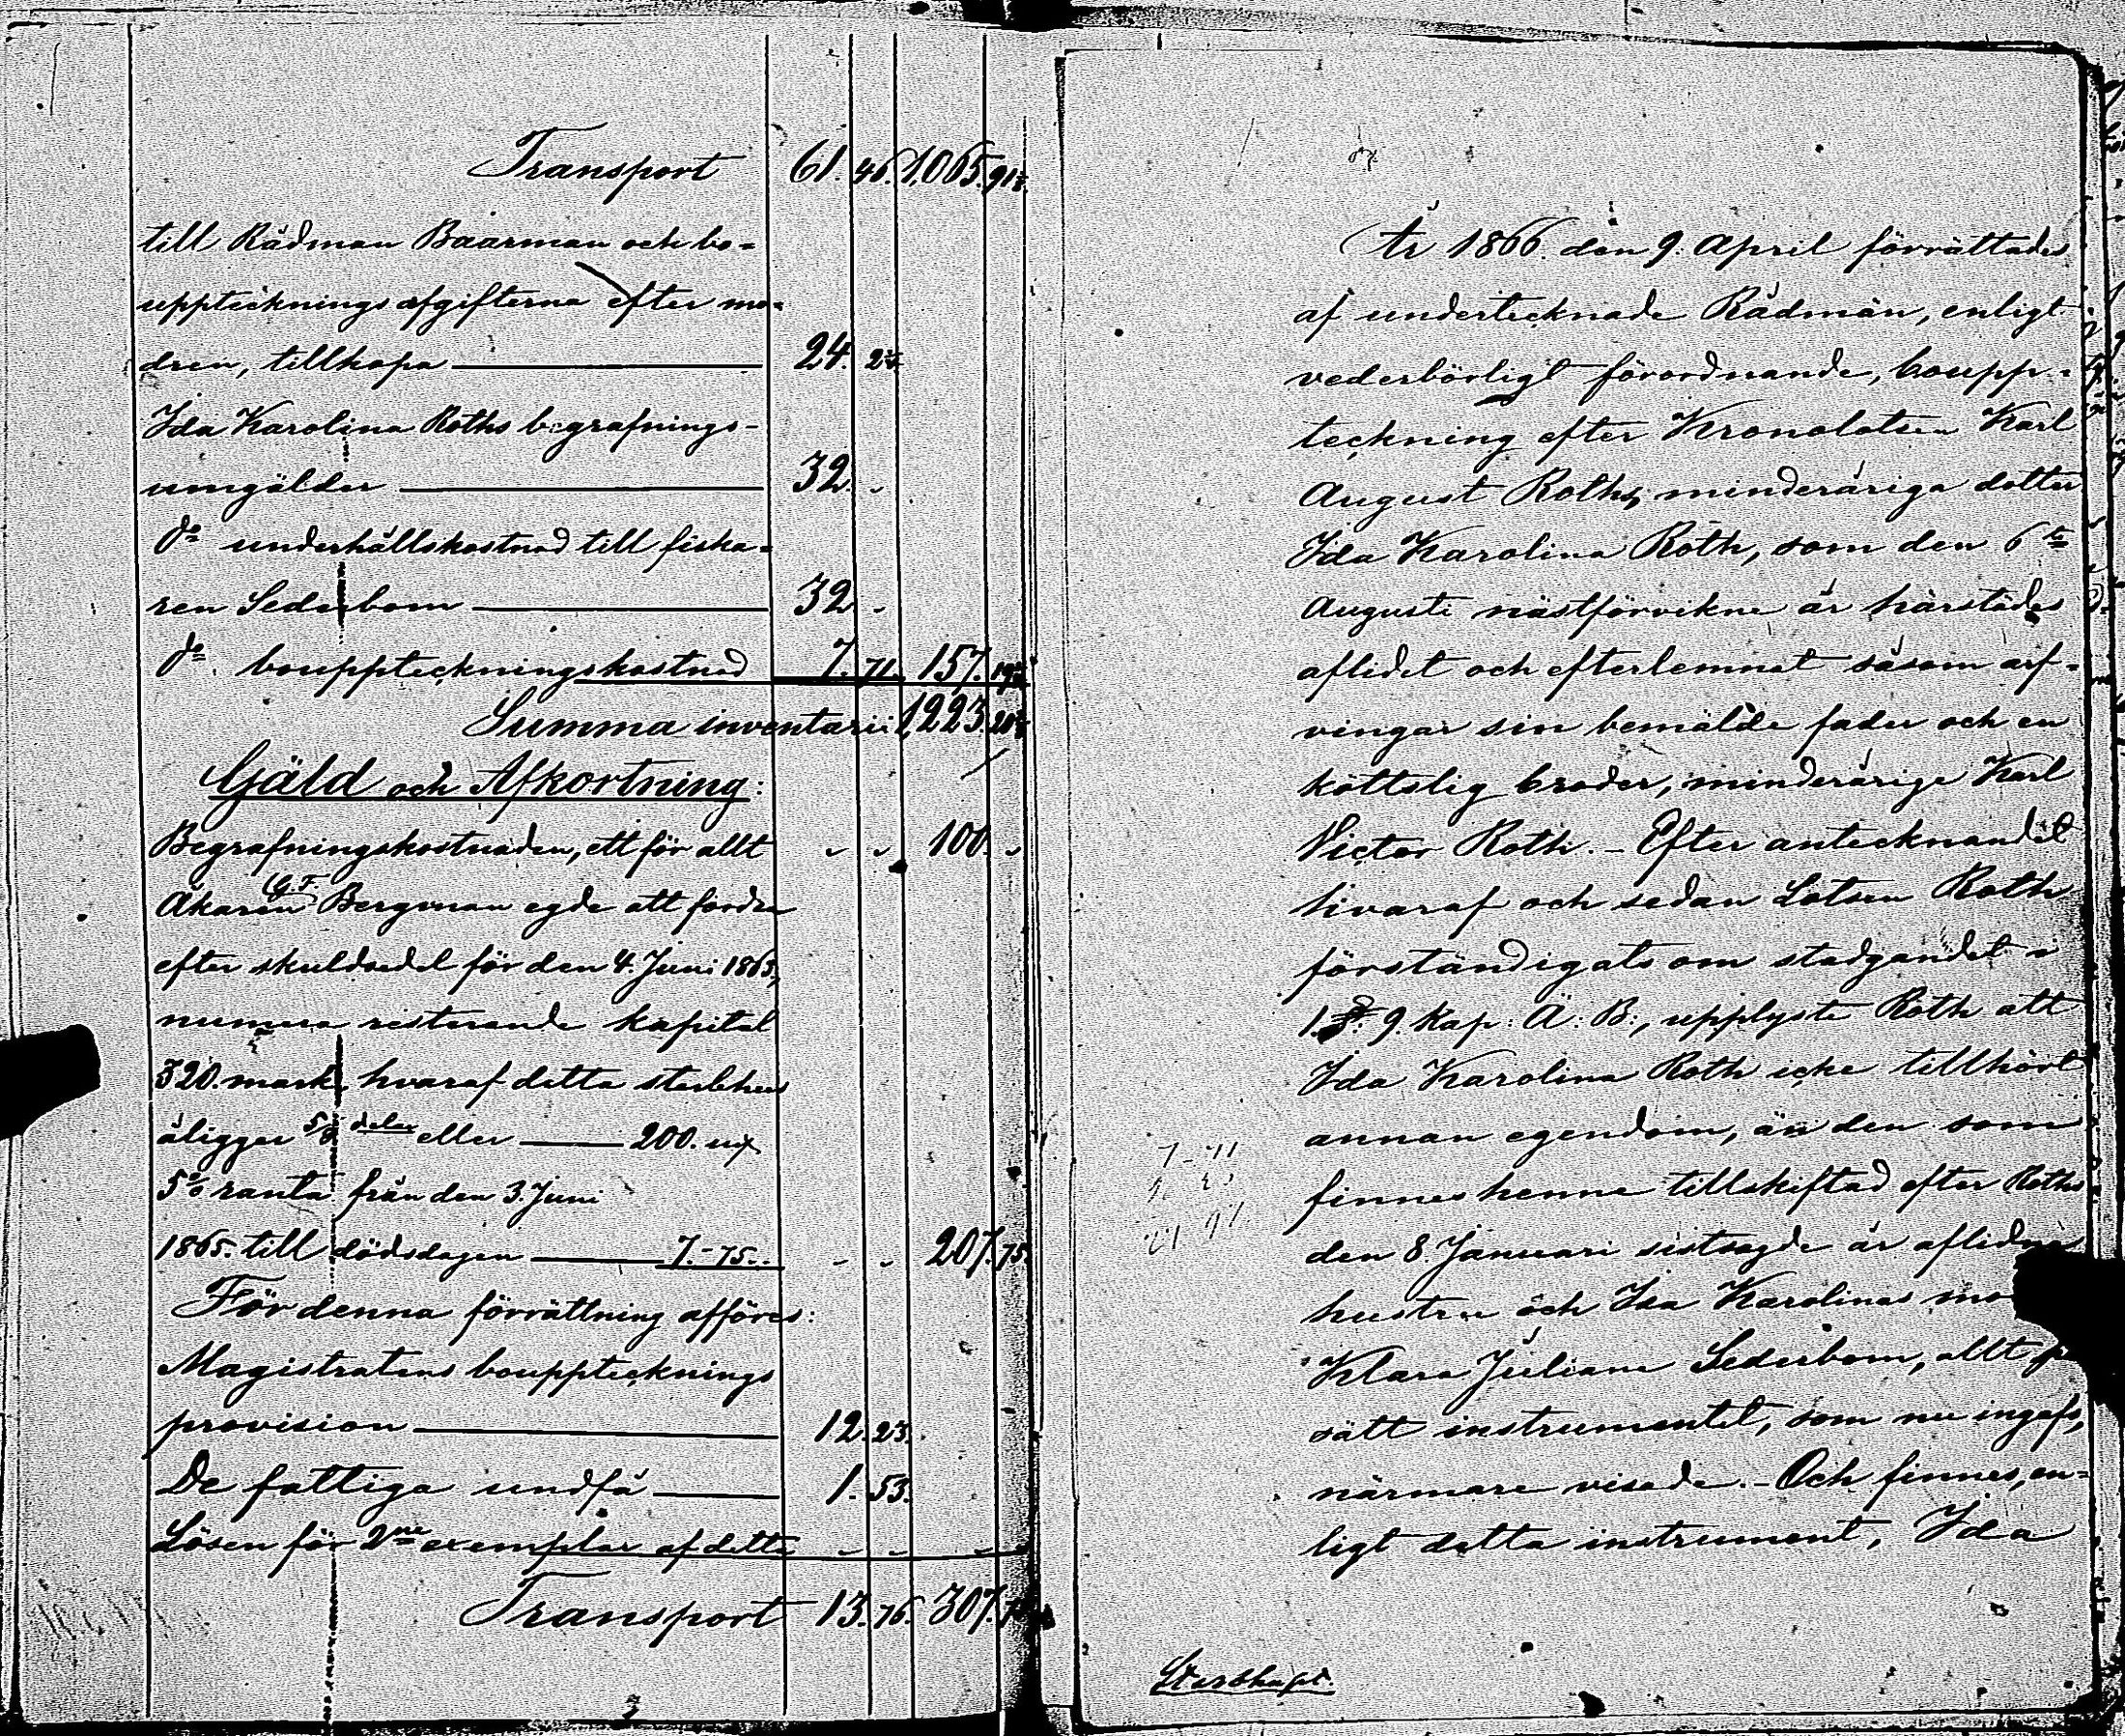 Transport 61. 46. 1,065. 91½
till Rådman Baarman och bo-
uppteckningsafgifterna efter mo-
dren, tillhopa 24. 2
Ida Karolina Roths begrafnings-
umgälder 32. -
do underhållskostnad till fiska-
ren Sederbom 32 -
do bouppteckningskostnad 7. 71. 157.
Summa inventarii: 1,223.
Gäld och Afkortning:
Begrafningskostnaden, ett för allt - - 100. -
Åkaren G. F. Bergman egde att fordra
efter skuldsedel för den 4. Juni 1865,
numera resterande kapital
320. mark, hvaraf detta sterbhus
åligger 5/8 delar eller 200. mk
5% ranta från den 3. Juni
1865. till dödsdagen 7.-75.. - - 207. 75.
För denna förrättning afföres:
Magistratens boupptecknings
provision 12. 23.
De fattiga undfå 1. 53.
Lösen för 2ne exemplar af detta - - - -
Transport 13. 76. 307.
År 1866. den 9. April förrättades
af undertecknade Rådmän, enligt
vederbörligt förordnande, boupp-
teckning efter Kronolotsen Karl
August Roths minderåriga dotter
Ida Karolina Roth, som den 6te
Augusti nästförvikne år härstädes
aflidet och efterlemnat såsom arf-
vingar sin bemälde fader och en
köttslig broder, minderårige Karl
Victor Roth. - Efter antecknandet
hvaraf och sedan Lotsen Roth
förständigats om stadgandet i
1. §. 9 Kap: Ä: B:, upplyste Roth att
Ida Karolina Roth icke tillhört
annan egendom, än den som
finnes henne tillskiftad efter Roths
den 8. Januari sistsagde år aflidna
hustru och Ida Karolinas mo
Klara Juliana Sederbom, allt på
sätt instrumentet, som nu ingafs,
närmare visade. - Och finnes, en-
ligt detta instrument, Ida